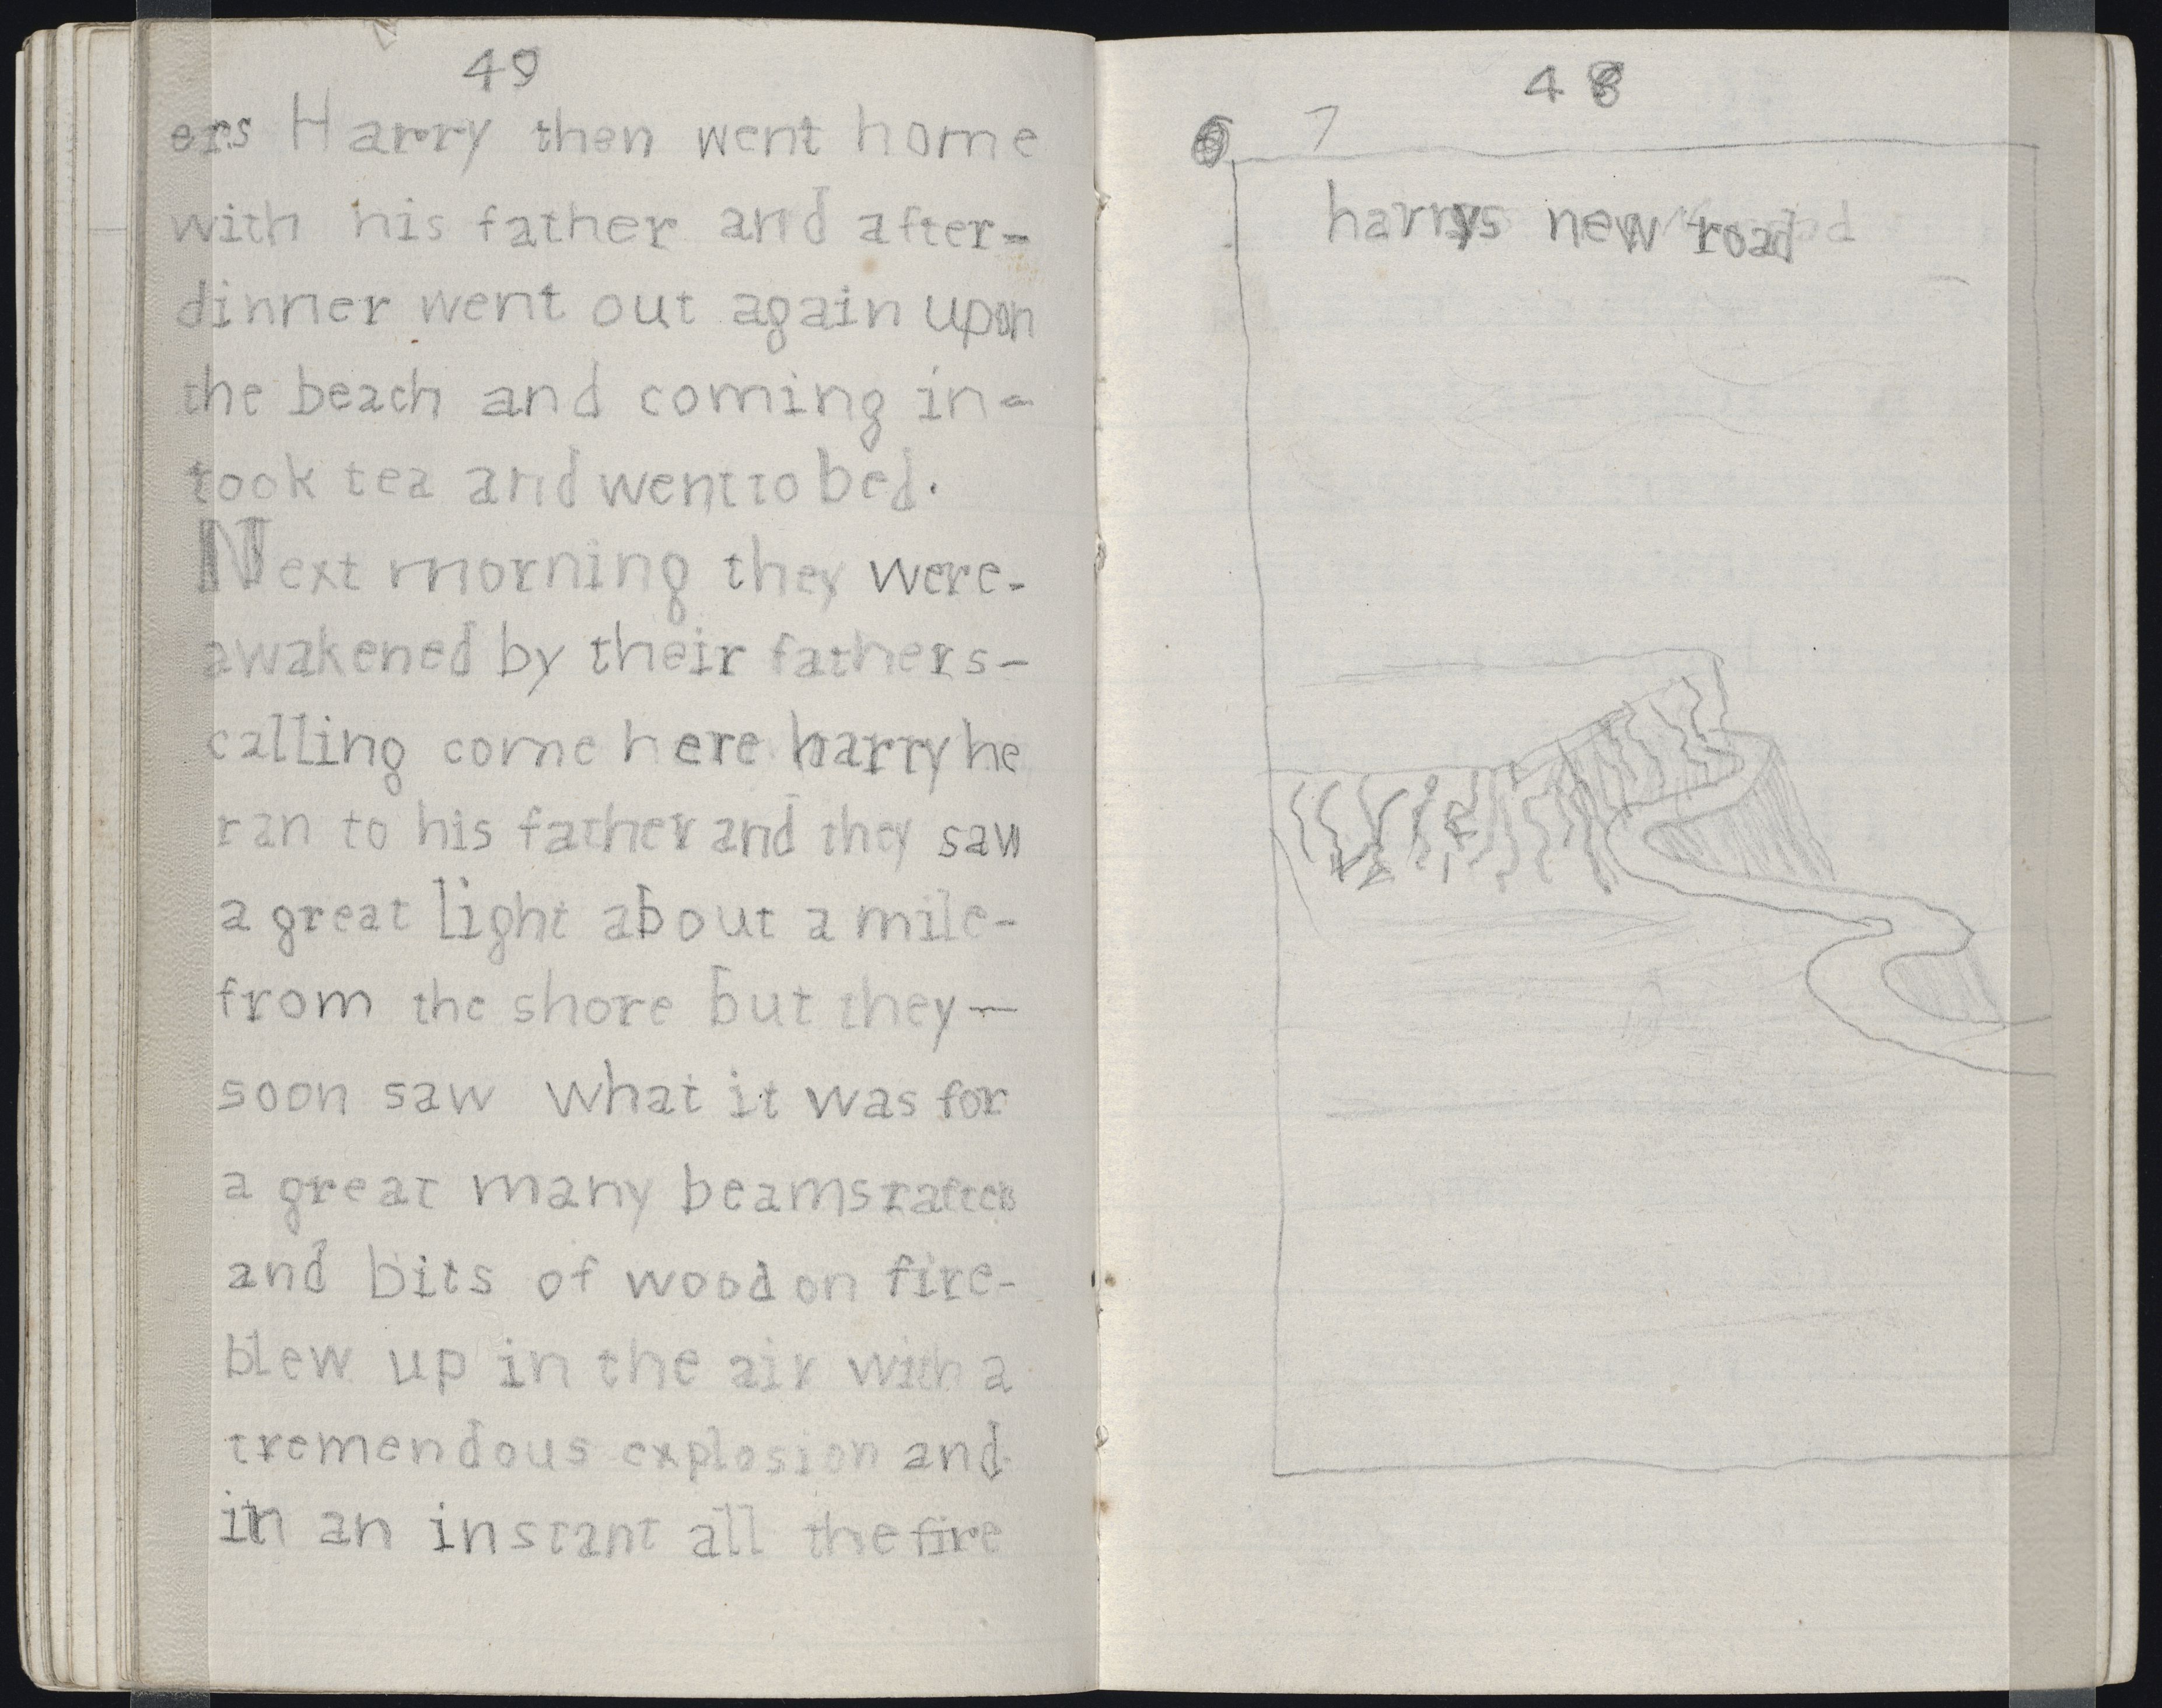 49
ers Harry then went home
with his father and after-
dinner went out again upon
the beach and coming in-
took tea and went to bed.
Next morning they were-
awakened by their fathers-
calling come here harry he
ran to his father and they saw
a great light about a mile-
from the shore but they-
soon saw what it was for
a great many beams rafters
and bits of wood on fire-
blew up in the air with a
tremendous explosion and
in an instant all the fire
48
7
harrys new road